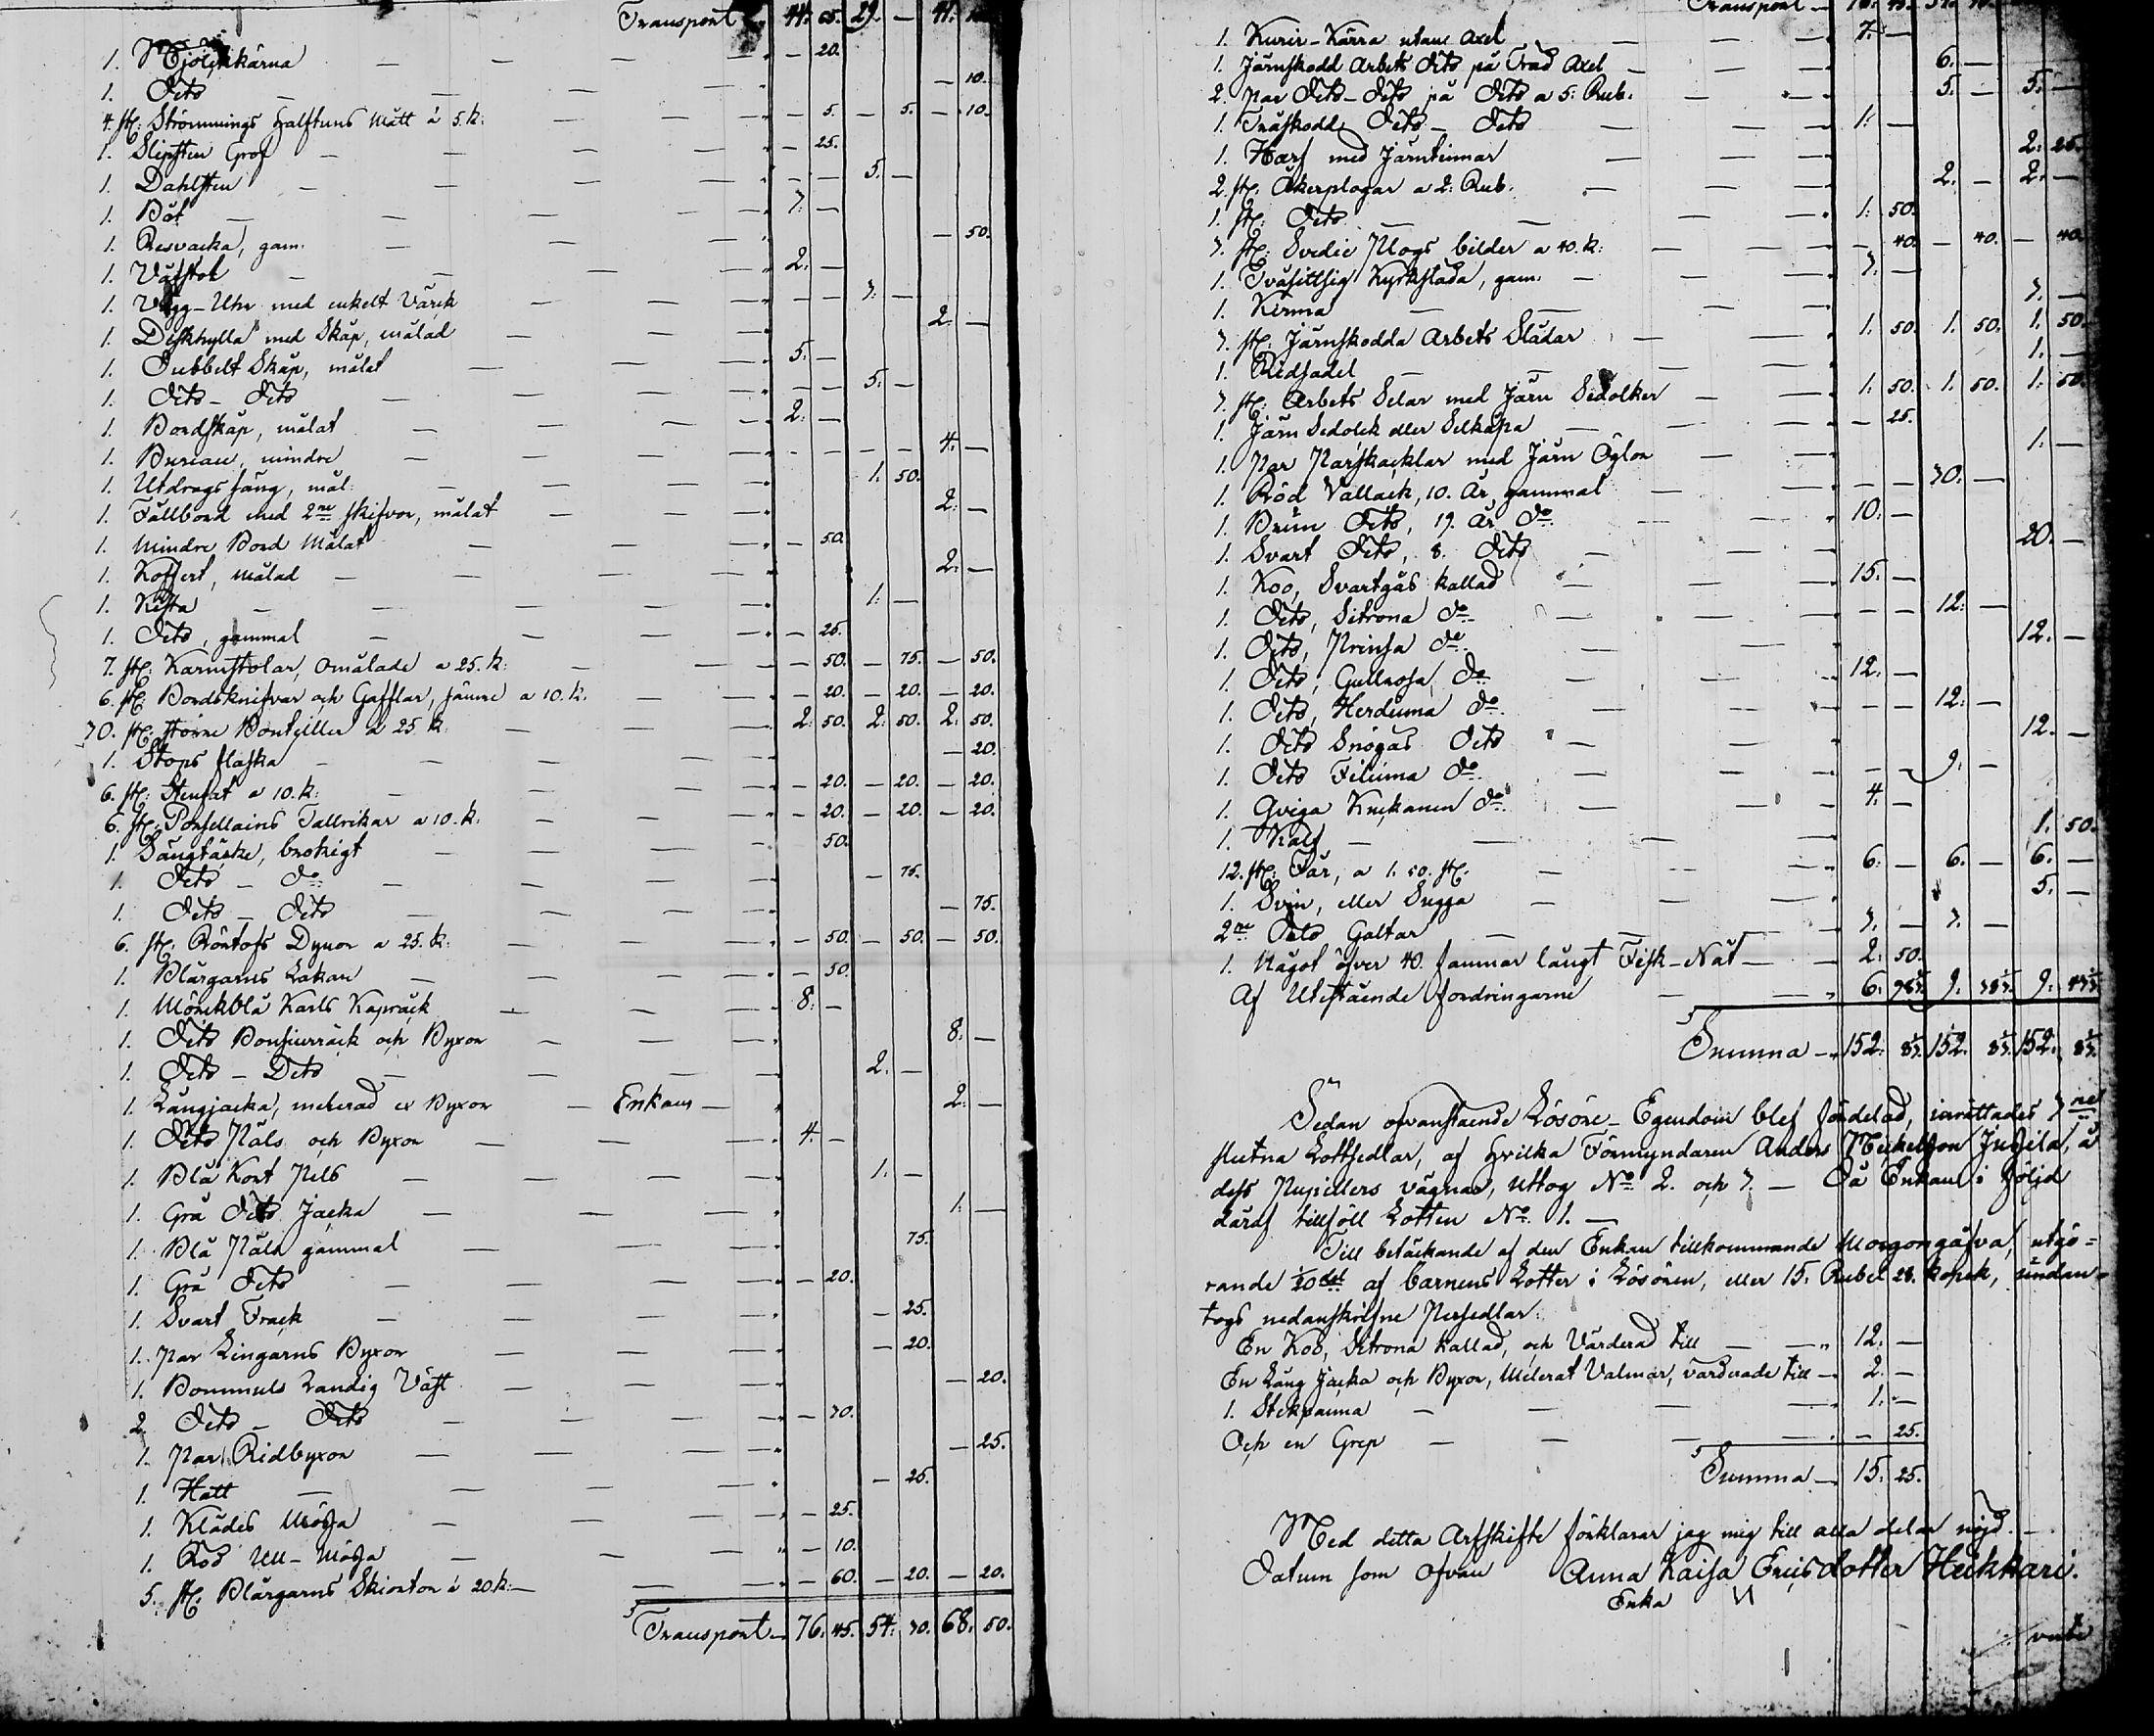 Transport 44. 65. 29. — 41.
1. Mjölkkärna — 20.
1. Dito — 10.
4. st. Strömmings Halftuns Mått à 5. k. — 5. — 5. — 10.
1. Slipsten Grof — 25.
1. Dahlsten 5. —
1. Båt 3. —
1. Resvacka, gam. — 50.
1. Väfstol 2. —
1. Vägg-Uhr med enkelt Värck 3. —
1. Diskhylla med Skåp, målad 2. —
1. Dubbelt Skåp, målat 5. —
1. Dito — Dito 5. —
1. Bordskåp, målat 2. —
1. Bureau, mindre 4. —
1. Utdrags säng, mål. 1. 50.
1. Fällbord med 2ne skifvor, målat 2. —
1. Mindre Bord Målat — 50.
1. Koffert, Målad 2. —
1. Kista 1. —
1. Dito, gammal — 25.
7. st. Karmstolar, Omålade a 25. k. — 50. — 75. — 50.
6. st. Bordsknifvar och Gafflar, sämre a 10. k. — 20. — 20. — 20.
30. st. större Bouteiller a 25 k. 2. 50. 2. 50. 2. 50.
1. Stops flaska — 20.
6. st. Stenfat a 10. k. — 20. — 20. — 20.
6. st. Porsellains Tallrikar a 10. k. — 20. — 20. — 20.
1. Sängtäcke, brokigt 50.
1. Dito — Do — 75.
1. Dito — Dito — 75.
6. st. Röntofs Dynor a 25. k. — 50. — 50. — 50.
1. Blårgarns Lakan — 50.
1. Mörckblå Karls Kapråck 8. —
1. Dito Bonjurråck och Byxor 8. —
1. Dito — Dito 2. —
1. Långjacka, melerad et Byxor — Enkans — 2. —
1. Dito Päls och Byxor 4. —
1. Blå Kort Pels 1. —
1. Grå Dito Jacka 1. —
1. Blå Päls gammal 75.
1. Grå Dito — 20.
1. Svart Frack — 25.
1. Par Lingarns Byxor — 20.
1. Bommuls randig Väst — 20.
2. Dito — Dito — 30.
1. Par Ridbyxor — 25.
1. Hatt — 25.
1. Klädes Mössa — 25.
1. Röd Ull-Mössa — 10.
5. st. Blårgarns Skiorton à 20 k. — 60. — 20. — 20.
Transport — 76. 45. 54. 30. 68. 50.
Transport —
1. Kurir-Kärra utan Axel 7. —
1. Järnskodd Arbets Dito på Träd Axel 6. —
2. par Dito — Dito på Dito a 5. Rub. 5. — 5. —
1. Träskodd Dito — Dito 1. —
1. Harf med Järntinnar 2. 25.
2. st. Åkerplogar a 2. Rub. 2. — 2. —
1. st. Dito 1. 50.
3. st. Svedie Plogs bilder a 40. k. — 40. — 40. — 40.
1. Tvåsittsig Kyrkslåda, gam. 3. —
1. Kerma 3. —
3. st. Järnskodda Arbets Slädar 1. 50. 1. 50. 1. 50.
1. Ridsadel 1. —
3. st. Arbets Selar med Järn Sedolker 1. 50. 1. 50. 1. 50.
1. Järn Sedolck eller Selkåpa — 25.
1. Par Parskacklar med Järn Öglor 1. —
1. Röd Vallack, 10. År gammal — 30. —
1. Brun Dito, 19. År Do 10. —
1. Svart Dito, 8. Dito 20. —
1. Koo, Svartgås kallad 15. —
1. Dito, Sitrona Do 12. —
1. Dito, Prinsa Do 12. —
1. Dito, Gullrosa, Do 12. —
1. Dito, Herduma Do 12. —
1. Dito Snögås Dito 12. —
1. Dito Filuma Do 9. —
1. Qviga Knickanen Do 4. —
1. Kalf 1. 50.
12. st. Får, a 1. 50. st. 6. — 6. — 6. —
1. Svin, eller Sugga 5. —
2ne Dito Galtar 3. — 3. —
1. Något öfver 40. famnar långt Fisk-Nät 2. 50.
Af Utestående fordringarne 6. 9.
Summa — 152. 152. 152.
Sedan ofvanstående Lösöre-Egendom blef fördelad, inrättades 3ne
slutna Lottsedlar, af hvilka Förmyndaren Anders Mickelsson Jussila, å
dess Pupillers vägnar, uttog No 2. och 3. — Då Enkan i följd
däraf tillföll Lotten No 1. —
Till betäckande af den Enkan tillkommande Morgongåfva, utgö=
rande 1/20del af barnens Lotter i Lösören, eller 15. Rubel 28. kopek, undan=
togs nedanskrifne Persedlar:
En Koo, Sitrona kallad, och Värderad till 12. —
En Lång Jacka och Byxor, Melerat Valmar, värderade till 2. —
1. Stekpanna 1. —
Och en Grep — 25.
Summa — 15. 25.
Med detta Arfskifte förklarar jag mig till alla delar nöjd.
Datum som Ofvan Anna Kaisa Ericsdotter Heikkari.
Enka
verte